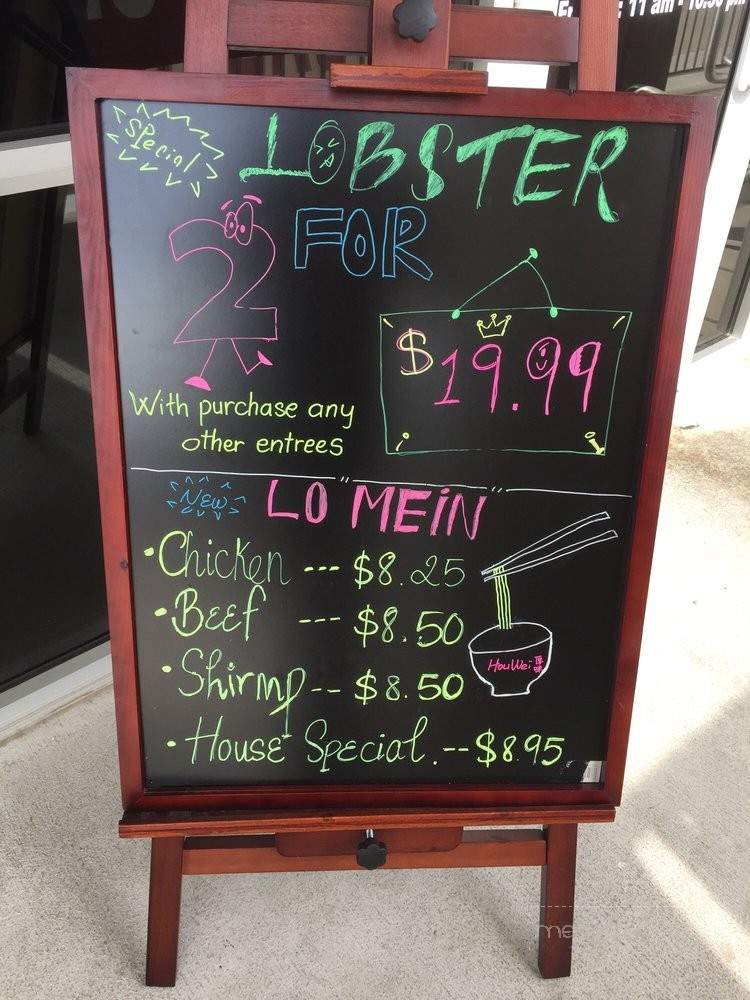 11 am - 10:30 pm
Special
LOBSTER
2 FOR
$19.99
With purchase any
other entrees
NEW LO MEIN
• Chicken --- $8.25
• Beef --- $8.50
• Shirmp -- $8.50
HouWei
• House Special. -- $8.95